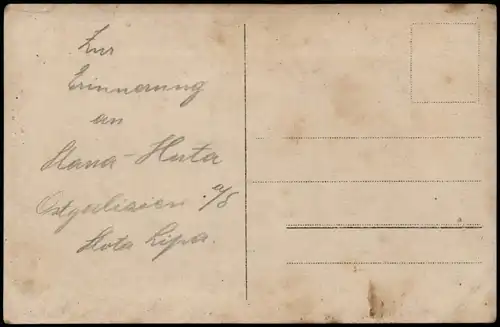 Zur
Erinnerung
an
Slawa-Huta
Ostgalizien. a/d
Zlota Lipa.